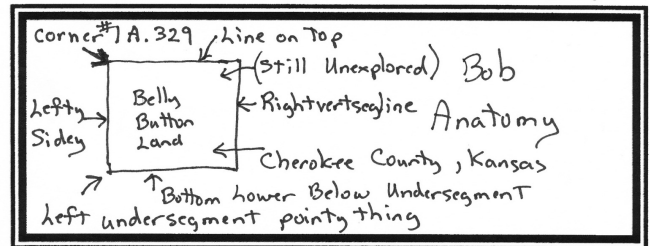 corner #1A.329
Line on Top
(Still Unexplored)
Bob
Anatomy
Lefty
Sidey
Belly
Button
Land
Rightvertsegline
Cherokee County, Kansas
Bottom Lower Below Undersegment
Left undersegment pointy thing